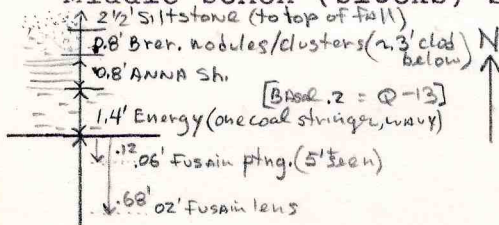 Middle bench (blocks)
2½' Siltstone (to top of fall)
0.8' Brer. nodules/clusters (~.3' clod below)
N
0.8' ANNA Sh.
[BAsal .2 = Q-13]
1.4' Energy (one coal stringer, wavy)
.12 .06' Fusain ptng. (5' seen)
.68' 02' Fusain lens